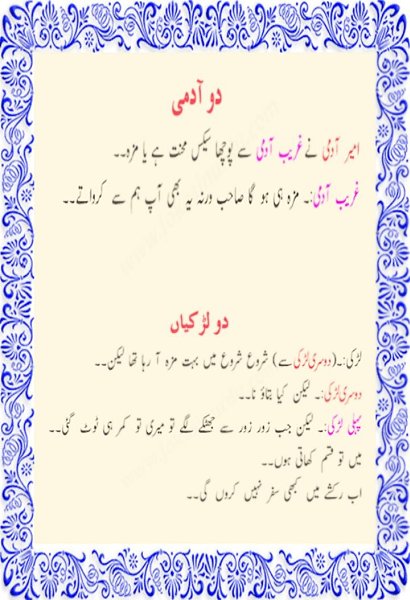 دو آدمی
امیر آدمی نے غریب آدمی سے پوچھا سیکس محنت ہے یا مزہ۔۔
غریب آدمی:۔ مزہ ہی ہو گا صاحب ورنہ یہ بھی آپ ہم سے کرواتے۔۔
دو لڑکیاں
لڑکی:۔(دوسری لڑکی سے) شروع شروع میں بہت مزہ آ رہا تھا لیکن۔۔
دوسری لڑکی:۔ لیکن کیا بتاؤ نا۔۔
پہلی لڑکی:۔ لیکن جب زور زور سے جھٹکے لگے تو میری تو کمر ہی ٹوٹ گئی۔۔
میں تو قسم کھاتی ہوں۔۔
اب رکشے میں کبھی سفر نہیں کروں گی۔۔